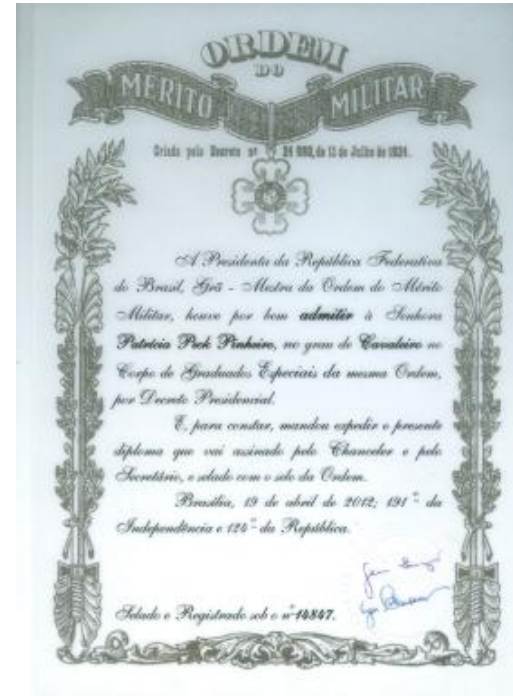 ORDEM
DO
MERITO MILITAR
Criada pelo Decreto nº 24 660, de 11 de Julho de 1934.
A Presidenta da República Federativa
do Brasil, Grã - Mestra da Ordem do Mérito
Militar, houve por bem admitir à Senhora
Patrícia Peck Pinheiro, no grau de Cavaleiro no
Corpo de Graduados Especiais da mesma Ordem,
por Decreto Presidencial.
E, para constar, mandou expedir o presente
diploma que vai assinado pelo Chanceler e pelo
Secretário, e selado com o selo da Ordem.
Brasília, 19 de abril de 2012; 191º da
Independência e 124º da República.
Selado e Registrado sob o nº 14847.